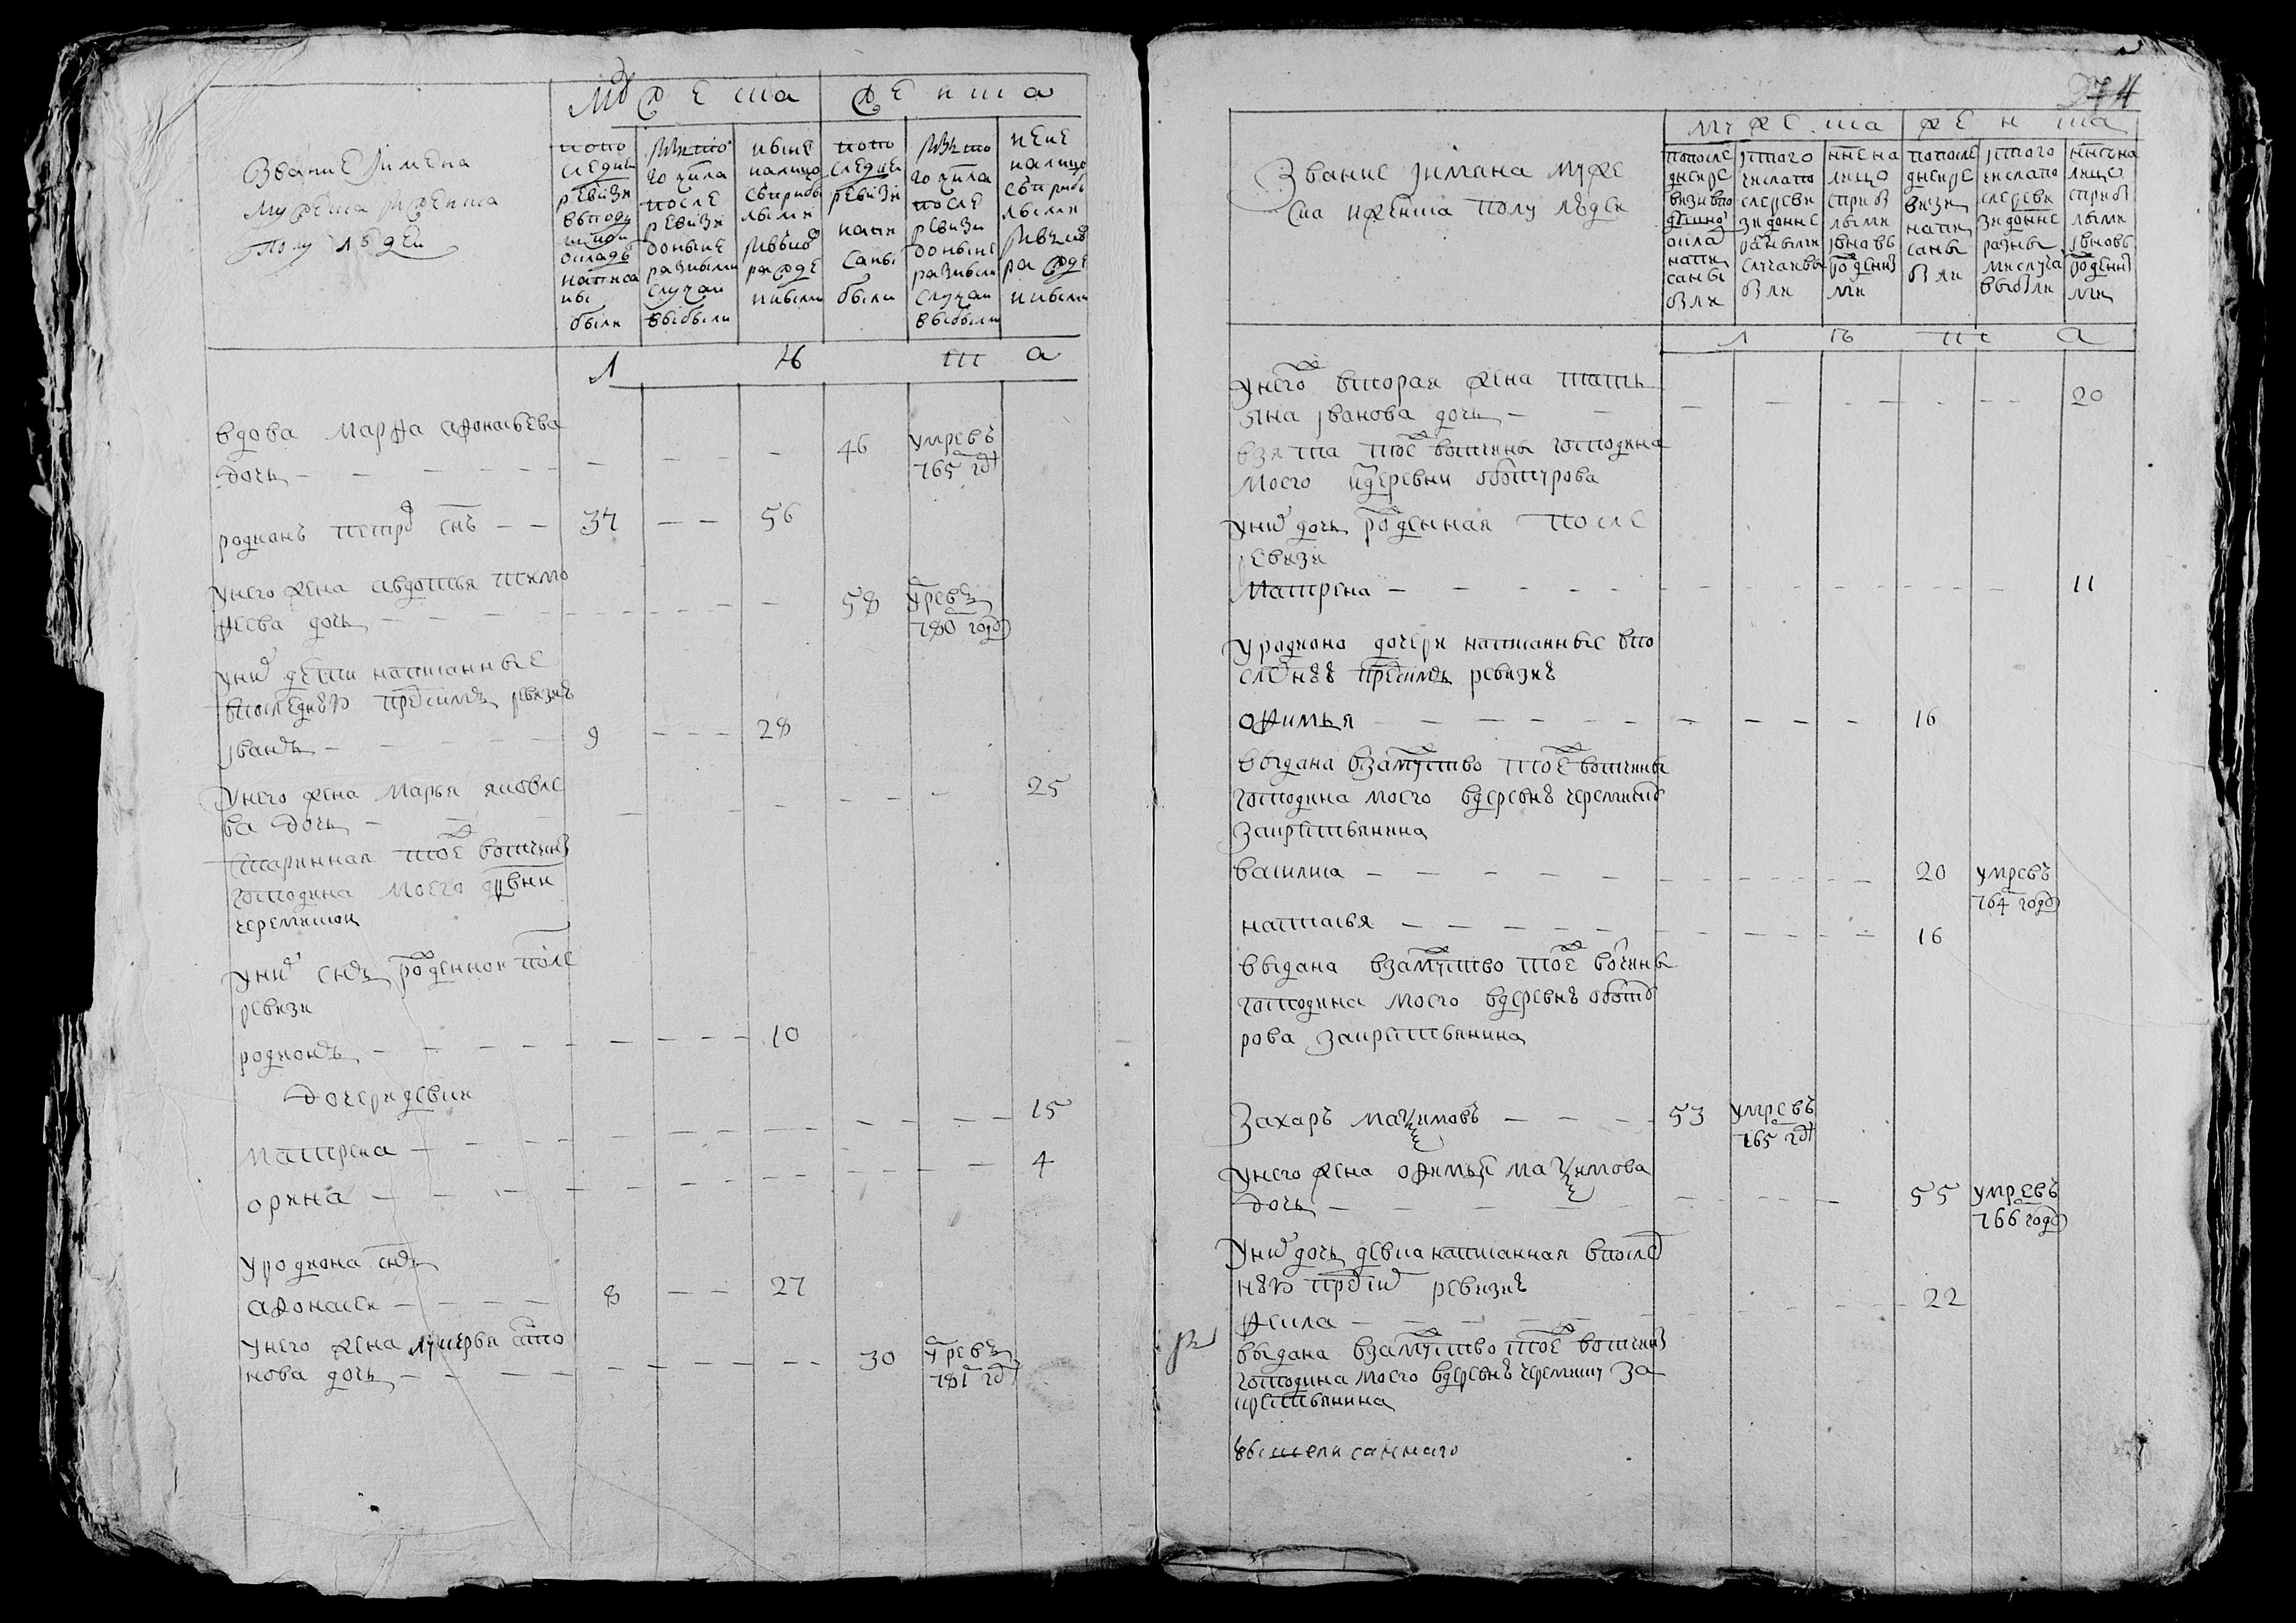 Мужеска
женска
Звание и имена
мужеска и женска
полу людей
попо
следне
ревизи
в поду
шной
оклад
написа
ны
были
ис то
го числа
после
ревизи
доныне
разными
случаи
выбыли
ныне
налицо
с прибы
лыми
и внов
рожде
ными
попо
следне
ревизи
напи
саны
были
ис то
го числа
после
ревизи
доныне
разными
случаи
выбыли
ныне
налицо
с прибы
лыми
и внов
рожде
ными
л ѣ т а
вдова марѳа афонасьева
дочь — — — — — — — — 46 умре въ
765 гд
родионъ петров снъ — — 37 — — 56
у него жена авдотья тимо
феева дочь — — — — — — 58 умре в
780 году
у них дети написанные
в последней пред сим ревизиѣ
иванъ — — — 9 — — — 28
у него жена марья яковле
ва дочь — — — — — — 25
старинная тое ж вотчины
господина моего дрвни
черемисок
у них снъ рожденной после
ревизи
родионъ — — — — — — — 10
дочери девки
матрена — — — — — — — 15
орина — — — — — — — 4
у родиона снъ
афонасеи — — — — 8 — — 27
у него жена лукерья анто
нова дочь — — — — — — 30 умре в
781 гд
274
мужеска
женска
Звание имена муже
ска и женска полу людеи
попосле
дне ре
визи в по
душно
оклад
напи
саны
были
ис того
числа по
сле реви
зи доне
разными
случаи вы
были
нне на
лицо
с приб
лыми
и вновь
рожден
ми
попосле
дне ре
визи
напи
саны
были
ис того
числа по
сле реви
зи доне
разны
ми случа
выбыли
нне на
лицо
с приб
лыми
и вновь
рожден
ми
л ѣ т а
у него ж вторая жена тать
яна иванова дочь — — — — — — — 20
взята тое ж вотчины господина
моего из деревни
у них дочь рожденная после
ревизи
Матрена — — — — — — — — 11
у родиона дочери написанные в по
следнеи пред симъ ревизиѣ
офимья — — — — — — — 16
выдана в замужство тое ж вотчины
господина моего в деревнѣ черемиско
за крестьянина
василиса — — — — — — — 20 умре въ
764 году
наталья — — — — — — — 16
выдана в замужство тое ж вотчины
господина моего в деревнѣ
за крестьянина
Захаръ максимовъ — — — 53 умре въ
765 гд
у него жена офимья максимова
дочь — — — — — — — 55 умре въ
766 году
у них дочь девка написанная в послед
неи пред сим ревизиѣ
фекла — — — — — — — 22
выдана в замужство тое ж вотчины
господина моего в деревнѣ за
крестьянина